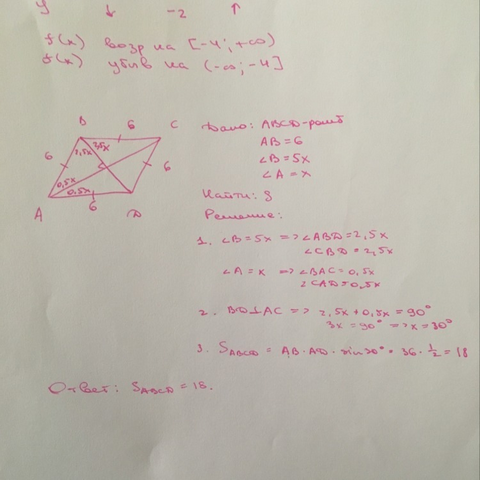 y ↓ -2 ↑
f(x) возр на [-4; +∞)
f(x) убыв на (-∞; -4]
B 6 C
2,5x 2,5x
6 6
0,5x
0,5x
A 6 D
Дано: ABCD-ромб
AB = 6
∠B = 5x
∠A = x
Найти: S
Решение:
1. ∠B = 5x => ∠ABD = 2,5x
∠CBD = 2,5x
∠A = x => ∠BAC = 0,5x
∠CAD = 0,5x
2. BD⊥AC => 2,5x + 0,5x = 90°
3x = 90° => x = 30°
3. SABCD = AB · AD · sin30° = 36 · 1/2 = 18
Ответ: SABCD = 18.